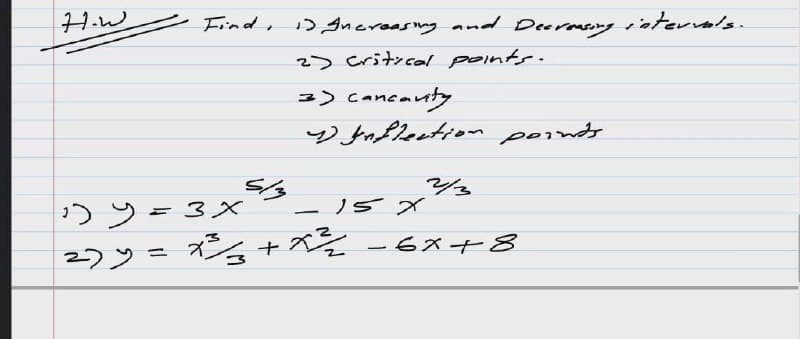 H.W Find, 1) Increasing and Decreasing intervals.
2) critical points.
3) concavity
4) Inflection points
1) y = 3x^{5/3} - 15x^{2/3}
2) y = x^3/3 + x^2/2 - 6x + 8